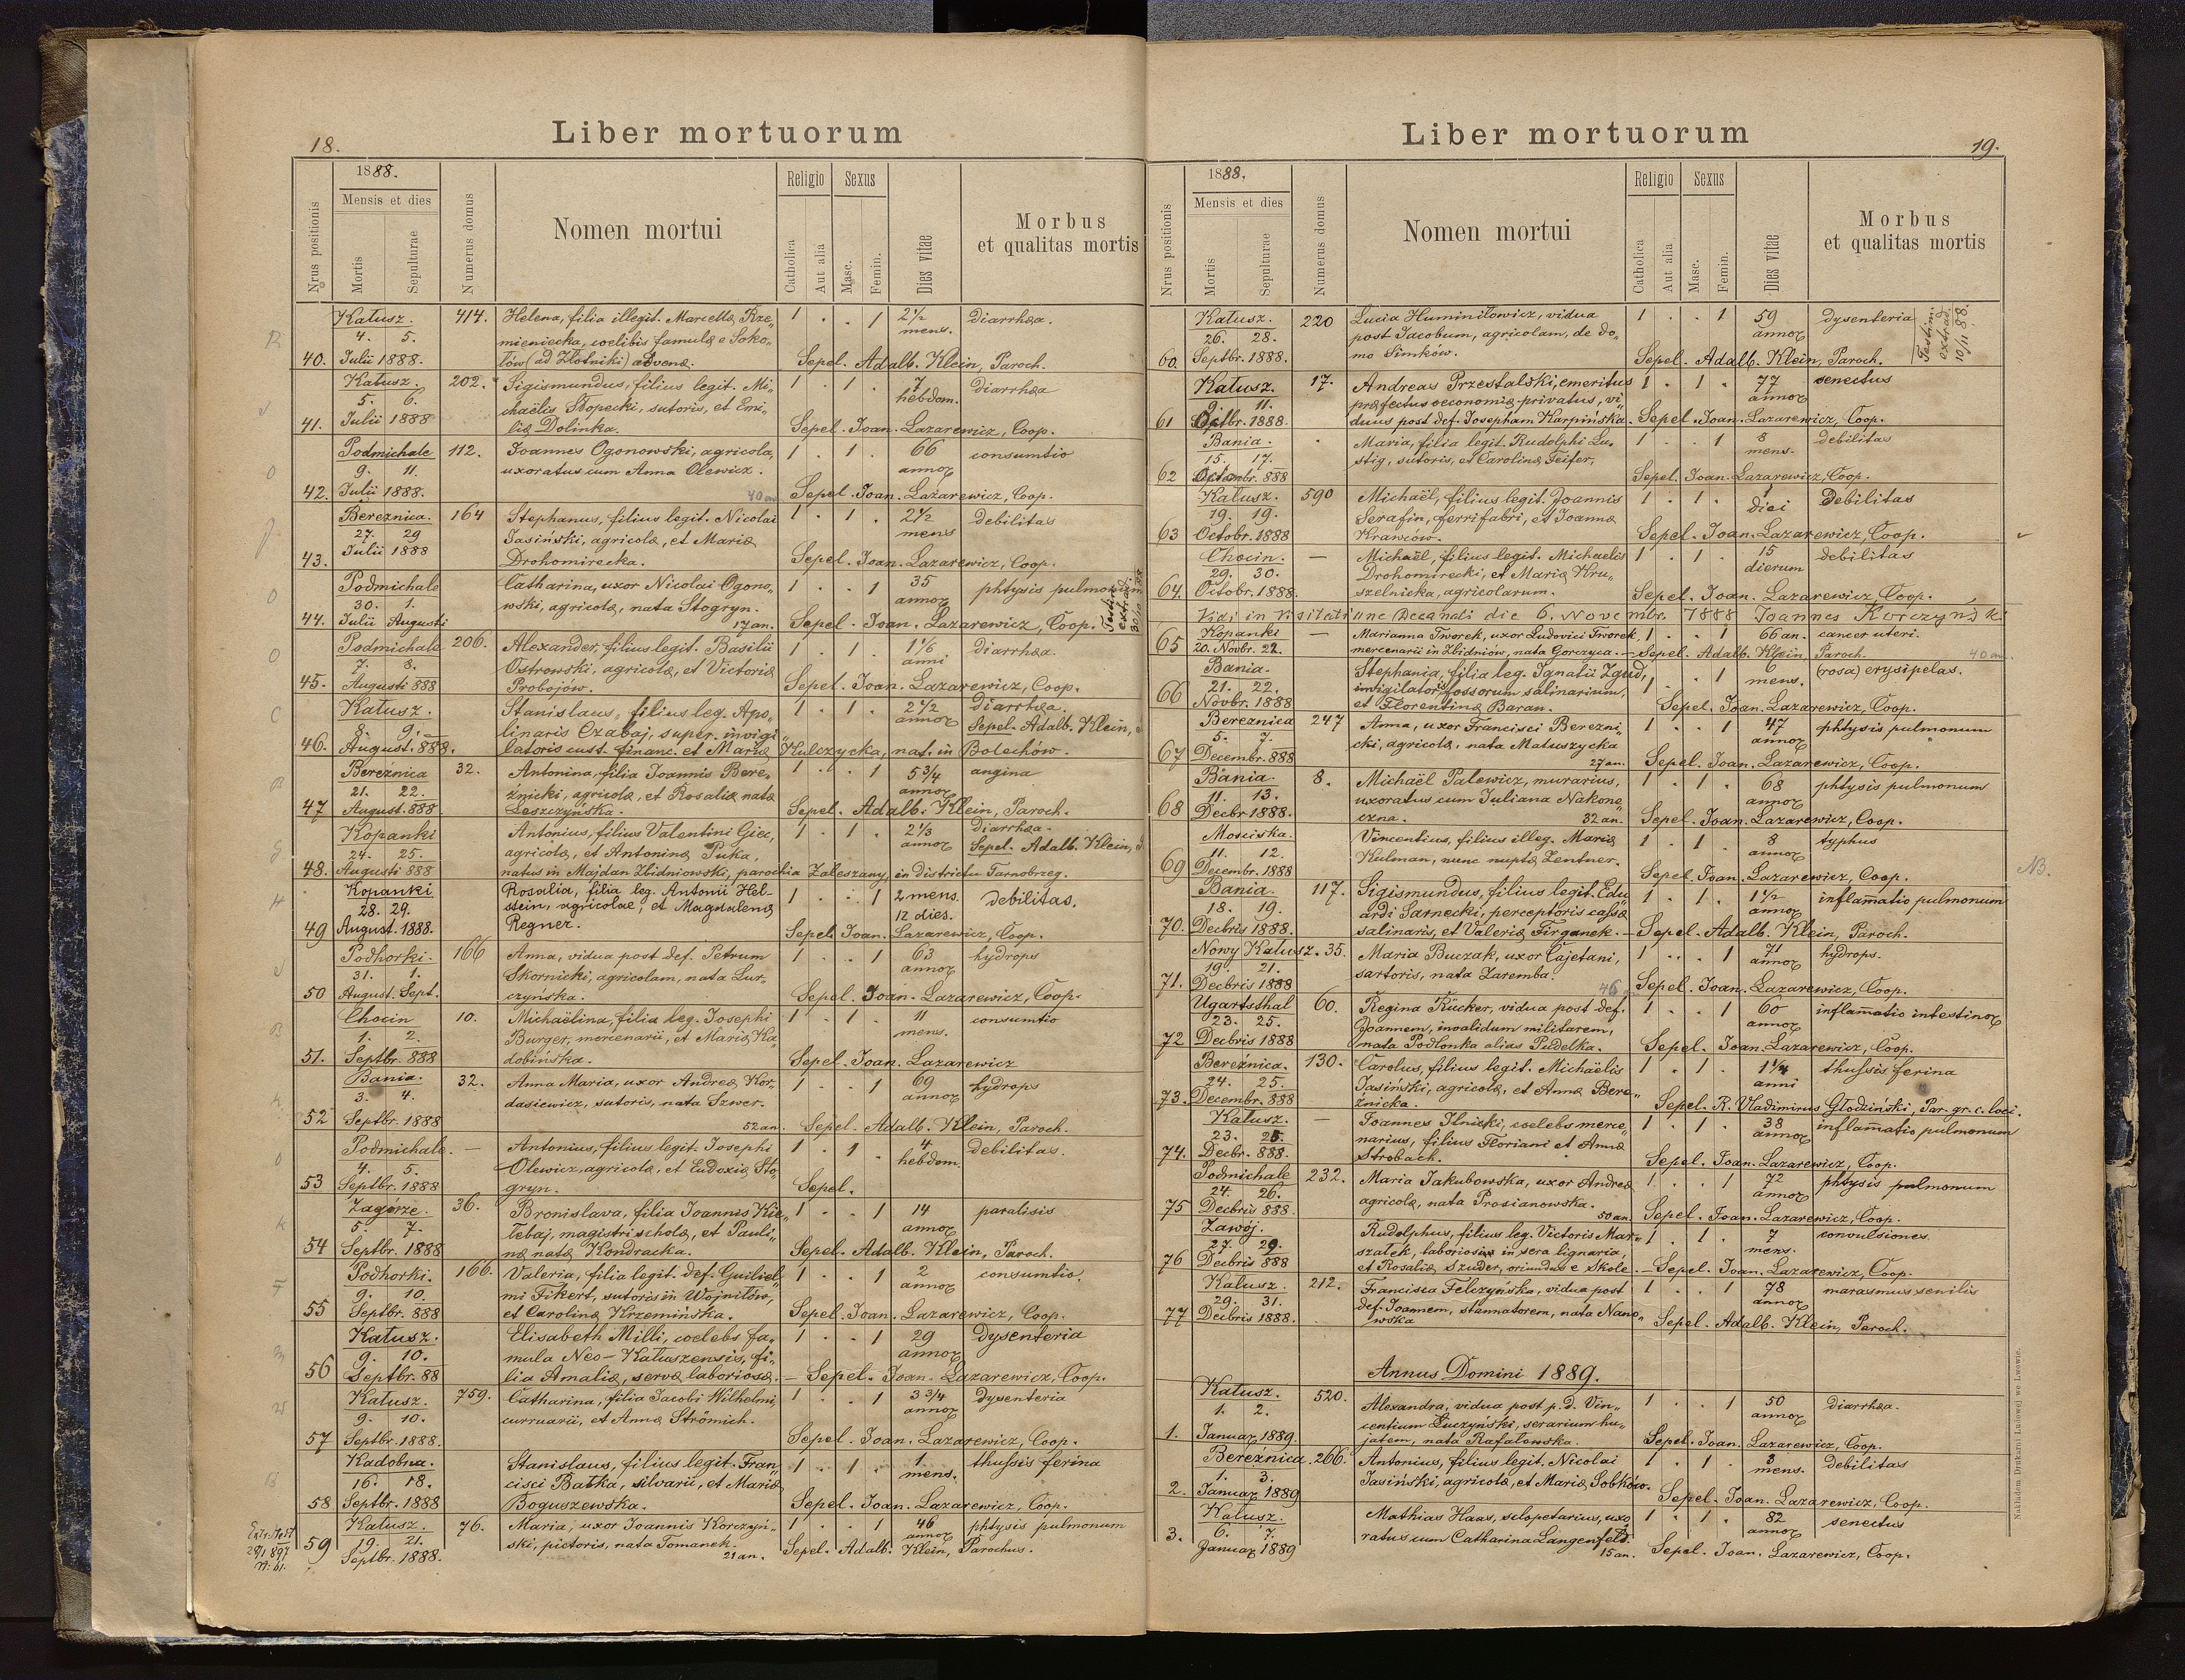 18.
Liber mortuorum
Nrus positionis
1888.
Mensis et dies
Mortis
Sepulturae
Numerus domus
Nomen mortui
Religio
Catholica
Aut alia
Sexus
Masc.
Femin.
Dies vitae
Morbus
et qualitas mortis
Kałusz. 414. Helena, filia illegit. Marcellæ Krze- 1 . . 1 2½ diarrhæa.
4. 5. mieniecka, coelibis famulæ e Soko- mens.
40. Julii 1888. łów (ad Złotniki) advenæ. Sepel. Adalb. Klein, Paroch.
Kałusz. 202. Sigismundus, filius legit. Mi- 1 . 1 . 7 diarrhæa
5. 6. chaëlis Stopecki, sutoris, et Emi- hebdom.
41. Julii 1888 liæ Dolinka. Sepel. Joan. Lazarewicz, Coop.
Podmichale 112. Joannes Ogonowski, agricola, 1 . 1 . 66 consumtio
9. 11. uxoratus cum Anna Olewicz. annoꝝ
42. Julii 1888. 40 an Sepel. Joan. Lazarewicz, Coop.
Bereżnica. 164 Stephanus, filius legit. Nicolai 1 . 1 . 2½ debilitas
27. 29 Jasiński, agricolæ, et Mariæ mens
43. Julii 1888 Drohomirecka. Sepel. Joan. Lazarewicz, Coop.
Podmichale Catharina, uxor Nicolai Ogono- 1 . . 1 35 phtysis pulmonum
30. 1. wski, agricolæ, nata Stogryn. annoꝝ
44. Julii Augusti 17 an. Sepel. Joan. Lazarewicz, Coop.
Podmichale 206. Alexander, filius legit. Basilii 1 . 1 . 1 1/6 diarrhæa.
7. 8. Ostrowski, agricolæ, et Victoriæ anni
45. Augusti 888 Probojów. Sepel. Joan. Lazarewicz, Coop.
Kałusz. Stanislaus, filius leg. Apo- 1 . 1 . 2½ diarrhæa.
8. 9. linaris Czabaj, super. invigi- annoꝝ Sepel. Adalb. Klein,
46. August. 888. latoris cust. financ. et Mariæ Kulczycka, nat. in Bolechów.
Bereźnica 32. Antonina, filia Joannis Bere- 1 . . 1 5¾ angina
21. 22. źnicki, agricolæ, et Rosaliæ natæ annoꝝ
47 August. 888 Leszczyńska. Sepel. Adalb. Klein, Paroch.
Kopanki Antonius, filius Valentini Giec, 1 . 1 . 2⅓ diarrhæa.
24. 25. agricolæ, et Antoninæ Puka, annoꝝ Sepel. Adalb. Klein,
48. Augusti 888 natus in Majdan Zbidniowski, parochia Zaleszany, in districtu Tarnobrzeg.
Kopanki Rosalia, filia leg. Antonii Hel- 1 . . 1 2 mens. debilitas.
28. 29. stein, agricolae, et Magdalenæ 12 dies.
49 August. 1888. Regner. Sepel. Joan. Lazarewicz, Coop.
Podhorki. 166 Anna, vidua post def. Petrum 1 . . 1 63 hydrops
31. 1. Skornicki, agricolam, nata Lur- annoꝝ
50 August. Sept. czyńska. Sepel. Joan. Lazarewicz, Coop.
Chocin 10. Michaëlina, filia leg. Josephi 1 . 1 . 11 consumtio
1. 2. Burger, mercenarii, et Mariæ Ka- mens.
51. Septbr. 888 dobińska. Sepel. Joan. Lazarewicz
Bania. 32. Anna Maria, uxor Andreæ Kor- 1 . . 1 69 hydrops
3. 4. dasiewicz, sutoris, nata Szwer. annoꝝ
52 Septbr. 1888 52 an. Sepel. Adalb. Klein, Paroch.
Podmichale. — Antonius, filius legit. Josephi 1 . 1 . 4 debilitas.
4. 5. Olewicz, agricolæ, et Eudoxiæ Sto- hebdom.
53 Septbr. 1888 gryn. Sepel.
Zagórze. 36. Bronislava, filia Joannis Kie- 1 . . 1 14 paralisis
5. 7. łebaj, magistri scholæ, et Pauli- annoꝝ
54 Septbr. 1888 næ natæ Kondracka. Sepel. Adalb. Klein, Paroch.
Podhorki. 166. Valeria, filia legit. def. Guiliel- 1 . . 1 2 consumtio.
9. 10. mi Fikert, sutoris in Wojniłów, annoꝝ
55 Septbr. 888 et Carolinæ Krzemińska. Sepel. Joan. Lazarewicz, Coop.
Kałusz. Elisabeth Milli, coelebs fa- 1 . . 1 29 Dysenteria
9. 10. mula Neo-Kałuszensis, fi- annoꝝ
56 Septbr. 88 lia Amaliæ, servæ laboriosæ. — Sepel. Joan. Lazarewicz, Coop.
Kałusz. 759. Catharina, filia Jacobi Wilhelmi, 1 . . 1 3¾ dysenteria
9. 10. curruarii, et Annæ Strömich. annoꝝ
57 Septbr. 1888. Sepel. Joan. Lazarewicz, Coop.
Kadobna. Stanislaus, filius legit. Fran- 1 . 1 . 1. thussis ferina
16. 18. cisci Bałka, silvarii, et Mariæ mens.
58 Septbr. 1888 Boguszewska. Sepel. Joan. Lazarewicz, Coop.
Kałusz. 76. Maria, uxor Joannis Korczyń- 1 . . 1 46 phtysis pulmonum
59 19. 21. ski, pictoris, nata Tomanek. annoꝝ
Septbr. 1888. 21 an. Sepel. Adalb. Klein, Parochus.
19.
Liber mortuorum
Nrus positionis
1888.
Mensis et dies
Mortis
Sepulturae
Numerus domus
Nomen mortui
Religio
Catholica
Aut alia
Sexus
Masc.
Femin.
Dies vitae
Morbus
et qualitas mortis
Kałusz. 220 Lucia Huminiłowicz, vidua 1 . . 1 59 dysenteria
26. 28. post Jacobum, agricolam, de do- annoꝝ
60. Septbr. 1888. mo Simków. Sepel. Adalb. Klein, Paroch.
Testim. extrad. 10/11 88.
Kałusz. 17. Andreas Przestalski, emeritus 1 . 1 . 77 senectus
9. 11. præfectus oeconomiæ privatus, vi- annoꝝ
61 Octbr. 1888. duus post def. Josepham Karpińska. Sepel. Joan. Lazarewicz, Coop.
Bania. . Maria, filia legit. Rudolphi Lu- 1 . . 1 8 Debilitas
15. 17. stig, sutoris, et Carolinæ Feifer, mens.
62 Octombr. 888 Sepel. Joan. Lazarewicz, Coop.
Kałusz. 590 Michaël, filius legit. Joannis 1 . 1 . 1 Debilitas
19. 19. Serafin, ferrifabri, et Joannæ diei
63 Octobr. 1888 Krawców. Sepel. Joan. Lazarewicz, Coop.
Chocin. — Michaël, filius legit. Michaelis 1 . 1 . 15 debilitas
29. 30. Drohomirecki, et Mariæ Hru- dierum
64. Octobr. 1888. szelnicka, agricolarum. Sepel. Joan. Lazarewicz, Coop.
Vidi in Visitatione Decanali die 6. Novembr. 1888 Joannes Korczyński
Kopanki — Marianna Tworek, uxor Ludovici Tworek, 1 . . 1 66 an. cancer uteri.
65 20. Novbr. 22. mercenarii in Zbidniów, nata Gorczyca. — Sepel. Adalb. Klein, Paroch. 40 an.
Bania. Stephania, filia leg. Ignatii Zgud, 1 . . 1 6 (rosa) erysipelas.
21. 22. invigilatoris fossorum salinarium, mens.
66 Novbr. 1888 et Florentinæ Baran. Sepel. Joan. Lazarewicz, Coop.
Bereźnica 247 Anna, uxor Francisci Berezni- 1 . . 1 47 phtysis pulmonum
5. 7. cki, agricolæ, nata Matuszycka annoꝝ
67 Decembr. 888 27 an. Sepel. Joan. Lazarewicz, Coop.
Bania. 8. Michaël Palewicz, murarius, 1 . 1 . 68 phtysis pulmonum
11. 13. uxoratus cum Juliana Nakone- annoꝝ
68 Decbr 1888. czna. 32 an. Sepel. Joan. Lazarewicz, Coop.
Mosciska. Vincentius, filius illeg. Mariæ 1 . 1 . 8 typhus
11. 12. Kulman, nunc nuptæ Zentner. annoꝝ
69 Decembr. 1888 Sepel. Joan. Lazarewicz, Coop.
NB.
Bania. 117. Sigismundus, filius legit. Edu- 1 . 1 . 1½ inflam̄atio pulmonum
18. 19. ardi Sarnecki, perceptoris cassæ annoꝝ
70. Decbris 1888. salinaris, et Valeriæ Firganek. — Sepel. Adalb. Klein, Paroch.
Nowy Kałusz. 35. Maria Buczak, uxor Cajetani, 1 . . 1 71 hydrops.
19. 21. sartoris, nata Zaremba. annoꝝ
71. Decbris 1888 46 Sepel. Joan. Lazarewicz, Coop.
Ugartsthal 60. Regina Rücker, vidua post def. 1 . . 1 60 inflam̄atio intestinoꝝ
23. 25. Joannem, invalidum militarem, annoꝝ
72 Decbris 1888 nata Podłonka alias Pudelka. Sepel. Joan. Lazarewicz, Coop.
Bereźnica. 130. Carolus, filius legit. Michaëlis 1 . 1 . 1¼ thussis ferina
24. 25. Jasiński, agricolæ, et Annæ Bere- anni
73. Decembr. 888 źnicka. Sepel. R. Vladimirus Głodziński, Par. gr. c. loci.
Kałusz. — Joannes Ilnicki, coelebs merce- 1 . 1 . 38 inflam̄atio pulmonum
23. 25. narius, filius Floriani et Annæ annoꝝ
74. Decbr. 888. Strobach. Sepel. Joan. Lazarewicz, Coop.
Podmichale 232. Maria Jakubowska, uxor Andreæ 1 . . 1 72 phtysis pulmonum
24. 26. agricolæ, nata Prosianowska. annoꝝ
75 Decbris 888. 50 an. Sepel. Joan. Lazarewicz, Coop.
Zawój. Rudolphus, filius leg. Victoris Mar- 1 . 1 . 7 convulsiones.
27. 29. szałek, laboriosi in sera lignaria, mens.
76 Decbris 888 et Rosaliæ Szuder, oriundus e Skole. — Sepel. Joan. Lazarewicz, Coop.
Kałusz. 212. Francisca Felczyńska, vidua post 1 . . 1 78 marasmus senilis
29. 31. def. Joannem, stannatorem, nata Nano- annoꝝ
77 Decbris 1888. wska Sepel. Adalb. Klein, Paroch.
Annus Domini 1889.
Kałusz. 520. Alexandra, vidua post p. d. Vin- 1 . . 1 50 diarrhæa.
1. 2. centium Łuczyński, serarium hu- annoꝝ
1. Januar 1889 jatem, nata Rafałowska. Sepel. Joan. Lazarewicz, Coop.
Bereźnica. 266. Antonius, filius legit. Nicolai 1 . 1 . 8 debilitas
1. 3. Jasiński, agricolæ, et Mariæ Sobków. mens.
2. Januar 1889 Sepel. Joan. Lazarewicz, Coop.
Kałusz. Mathias Haas, sclopetarius, uxo- 1 . 1 . 82 senectus
3. 6. 7. ratus cum Catharina Langenfeld. annoꝝ
Januar 1889 15 an. Sepel. Joan. Lazarewicz, Coop.
Nakładem Drukarni Ludowej we Lwowie.